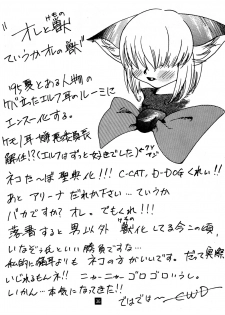 "オレと獣
ていうかオレの獣"
'95裏とある人物の
ケバ立ったエルフ耳のルーミに
エンスー化する。
ケモノ耳
解任!?(エルフはずっと好きでした)
ネコたーぱ聖典化!!! C-CAT, D-DOGくれぃ!!
あと アリーナ だれか下さい…ていうか
バカですか? オレ。でもくれ!!
落書すると男以外 獣化してる今この頃
いなぞぅ氏といい勝負ですな…
私的に猫耳よりも ネコの方がいいです。だって実際
いじれるもんネ!! ニャーニャーゴロゴロいうし。
いかん…本気になってきた!!
ではでは〜 CWD